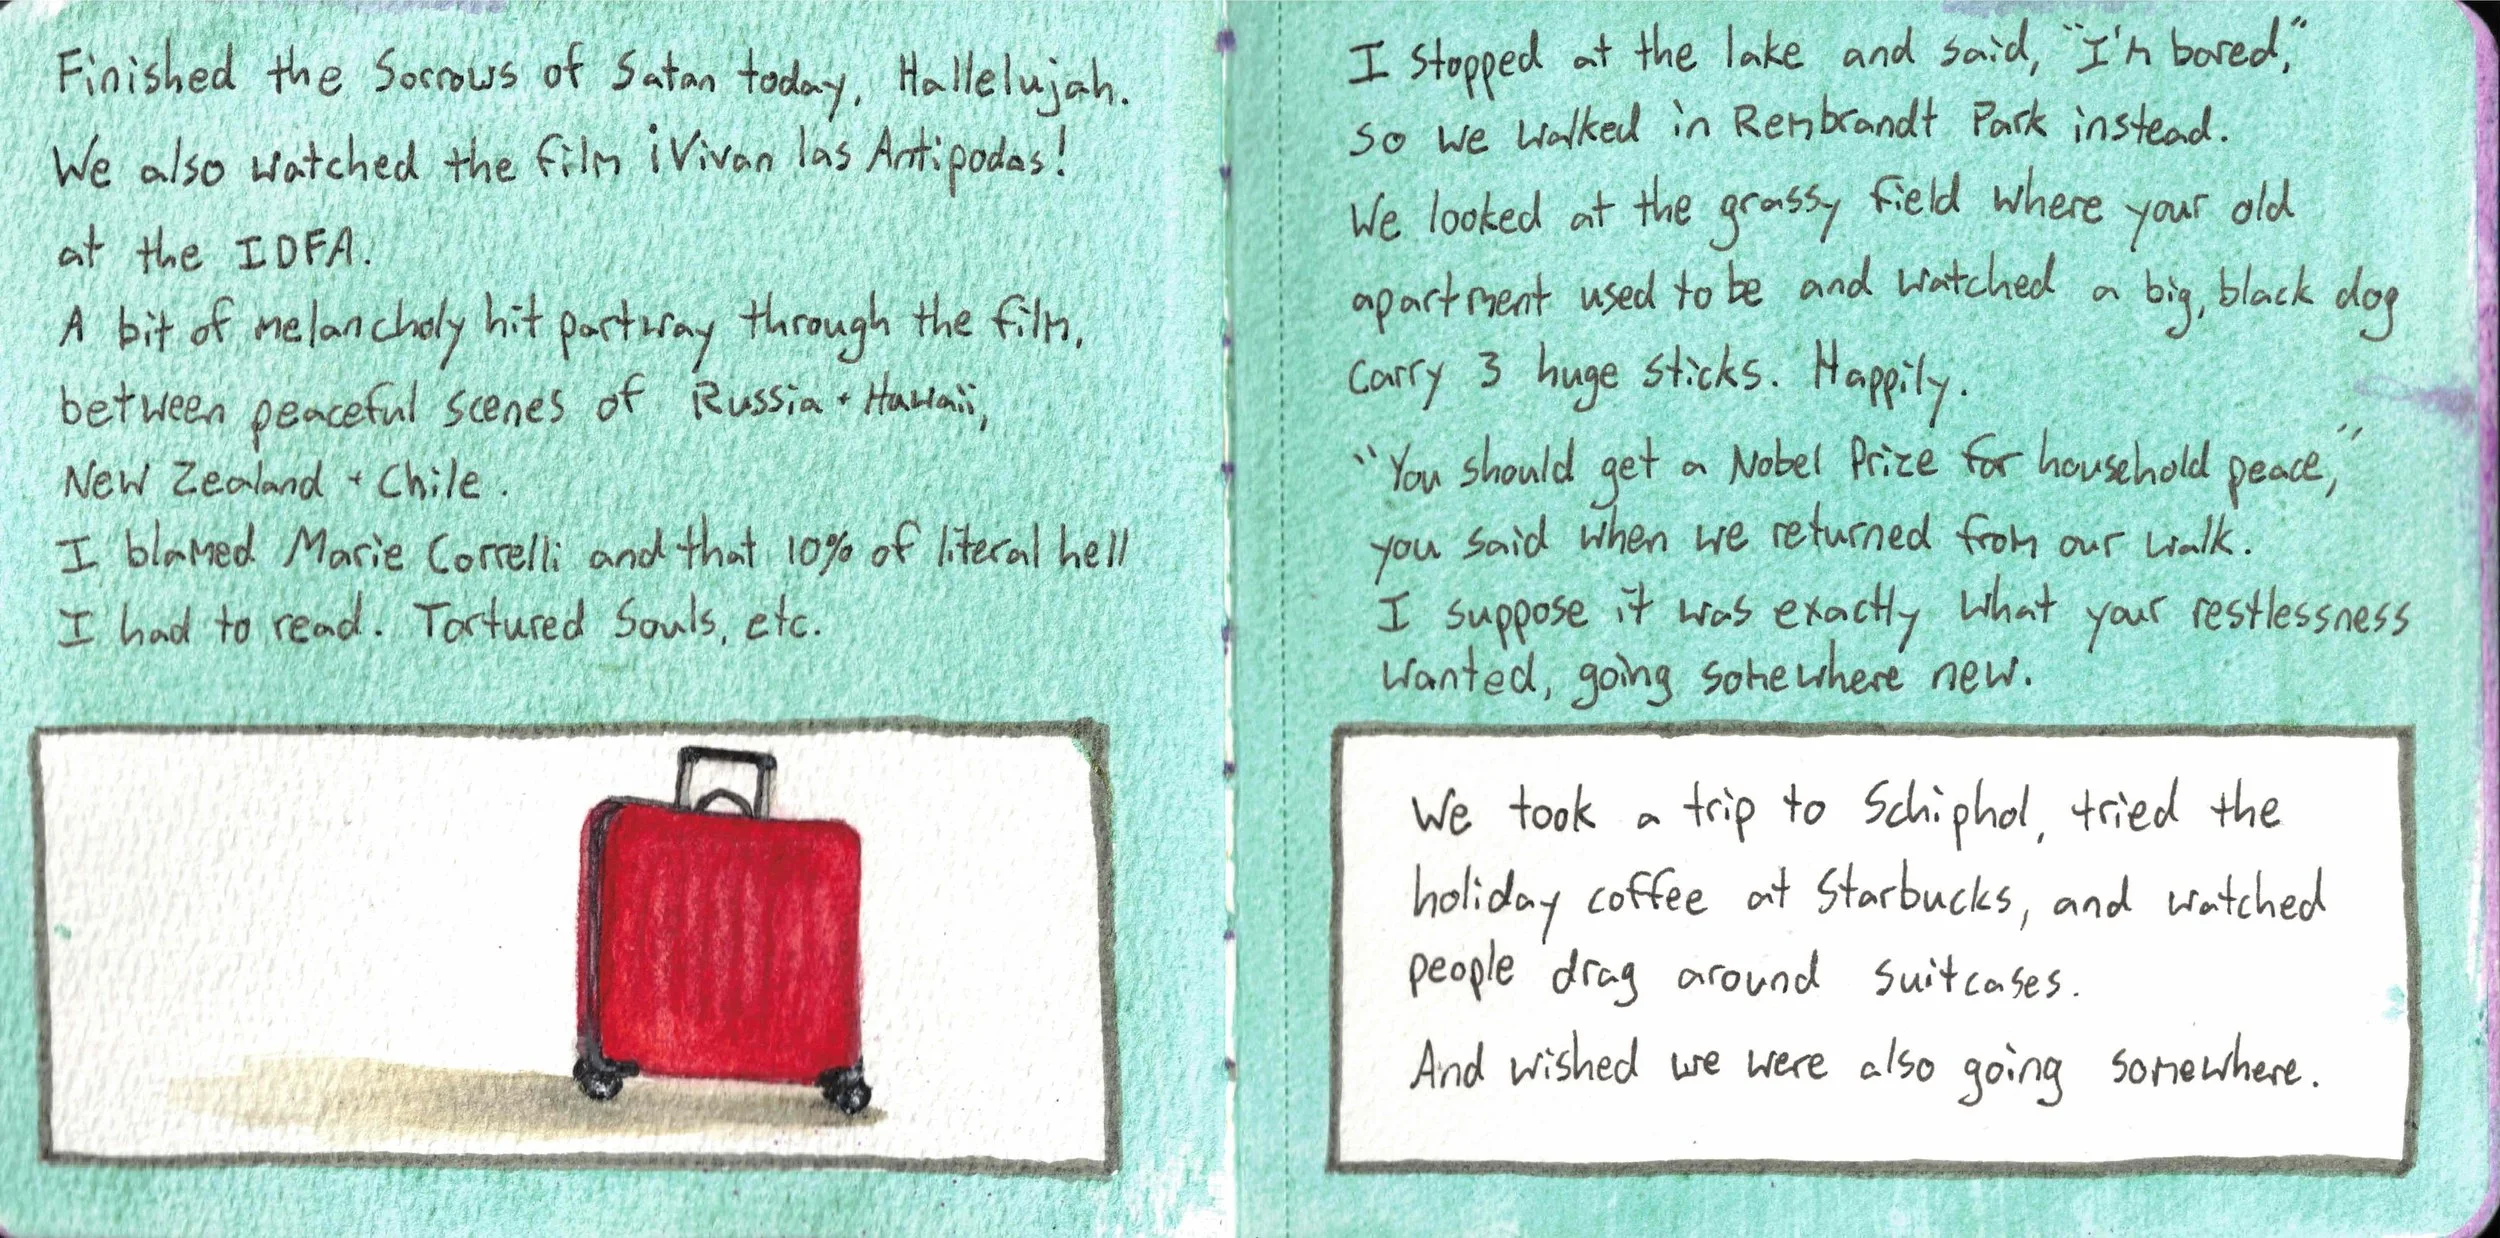 Finished the Sorrows of Satan today, Hallelujah.
We also watched the film ¡Vivan las Antipodas!
at the IDFA.
A bit of melancholy hit partway through the film,
between peaceful scenes of Russia + Hawaii,
New Zealand + Chile.
I blamed Marie Correlli and that 10% of literal hell
I had to read. Tortured Souls, etc.
I stopped at the lake and said, "I'm bored,"
so we walked in Rembrandt Park instead.
We looked at the grassy field where your old
apartment used to be and watched a big, black dog
carry 3 huge sticks. Happily.
"You should get a Nobel Prize for household peace,"
you said when we returned from our walk.
I suppose it was exactly what your restlessness
wanted, going somewhere new.
We took a trip to Schiphol, tried the
holiday coffee at Starbucks, and watched
people drag around suitcases.
And wished we were also going somewhere.